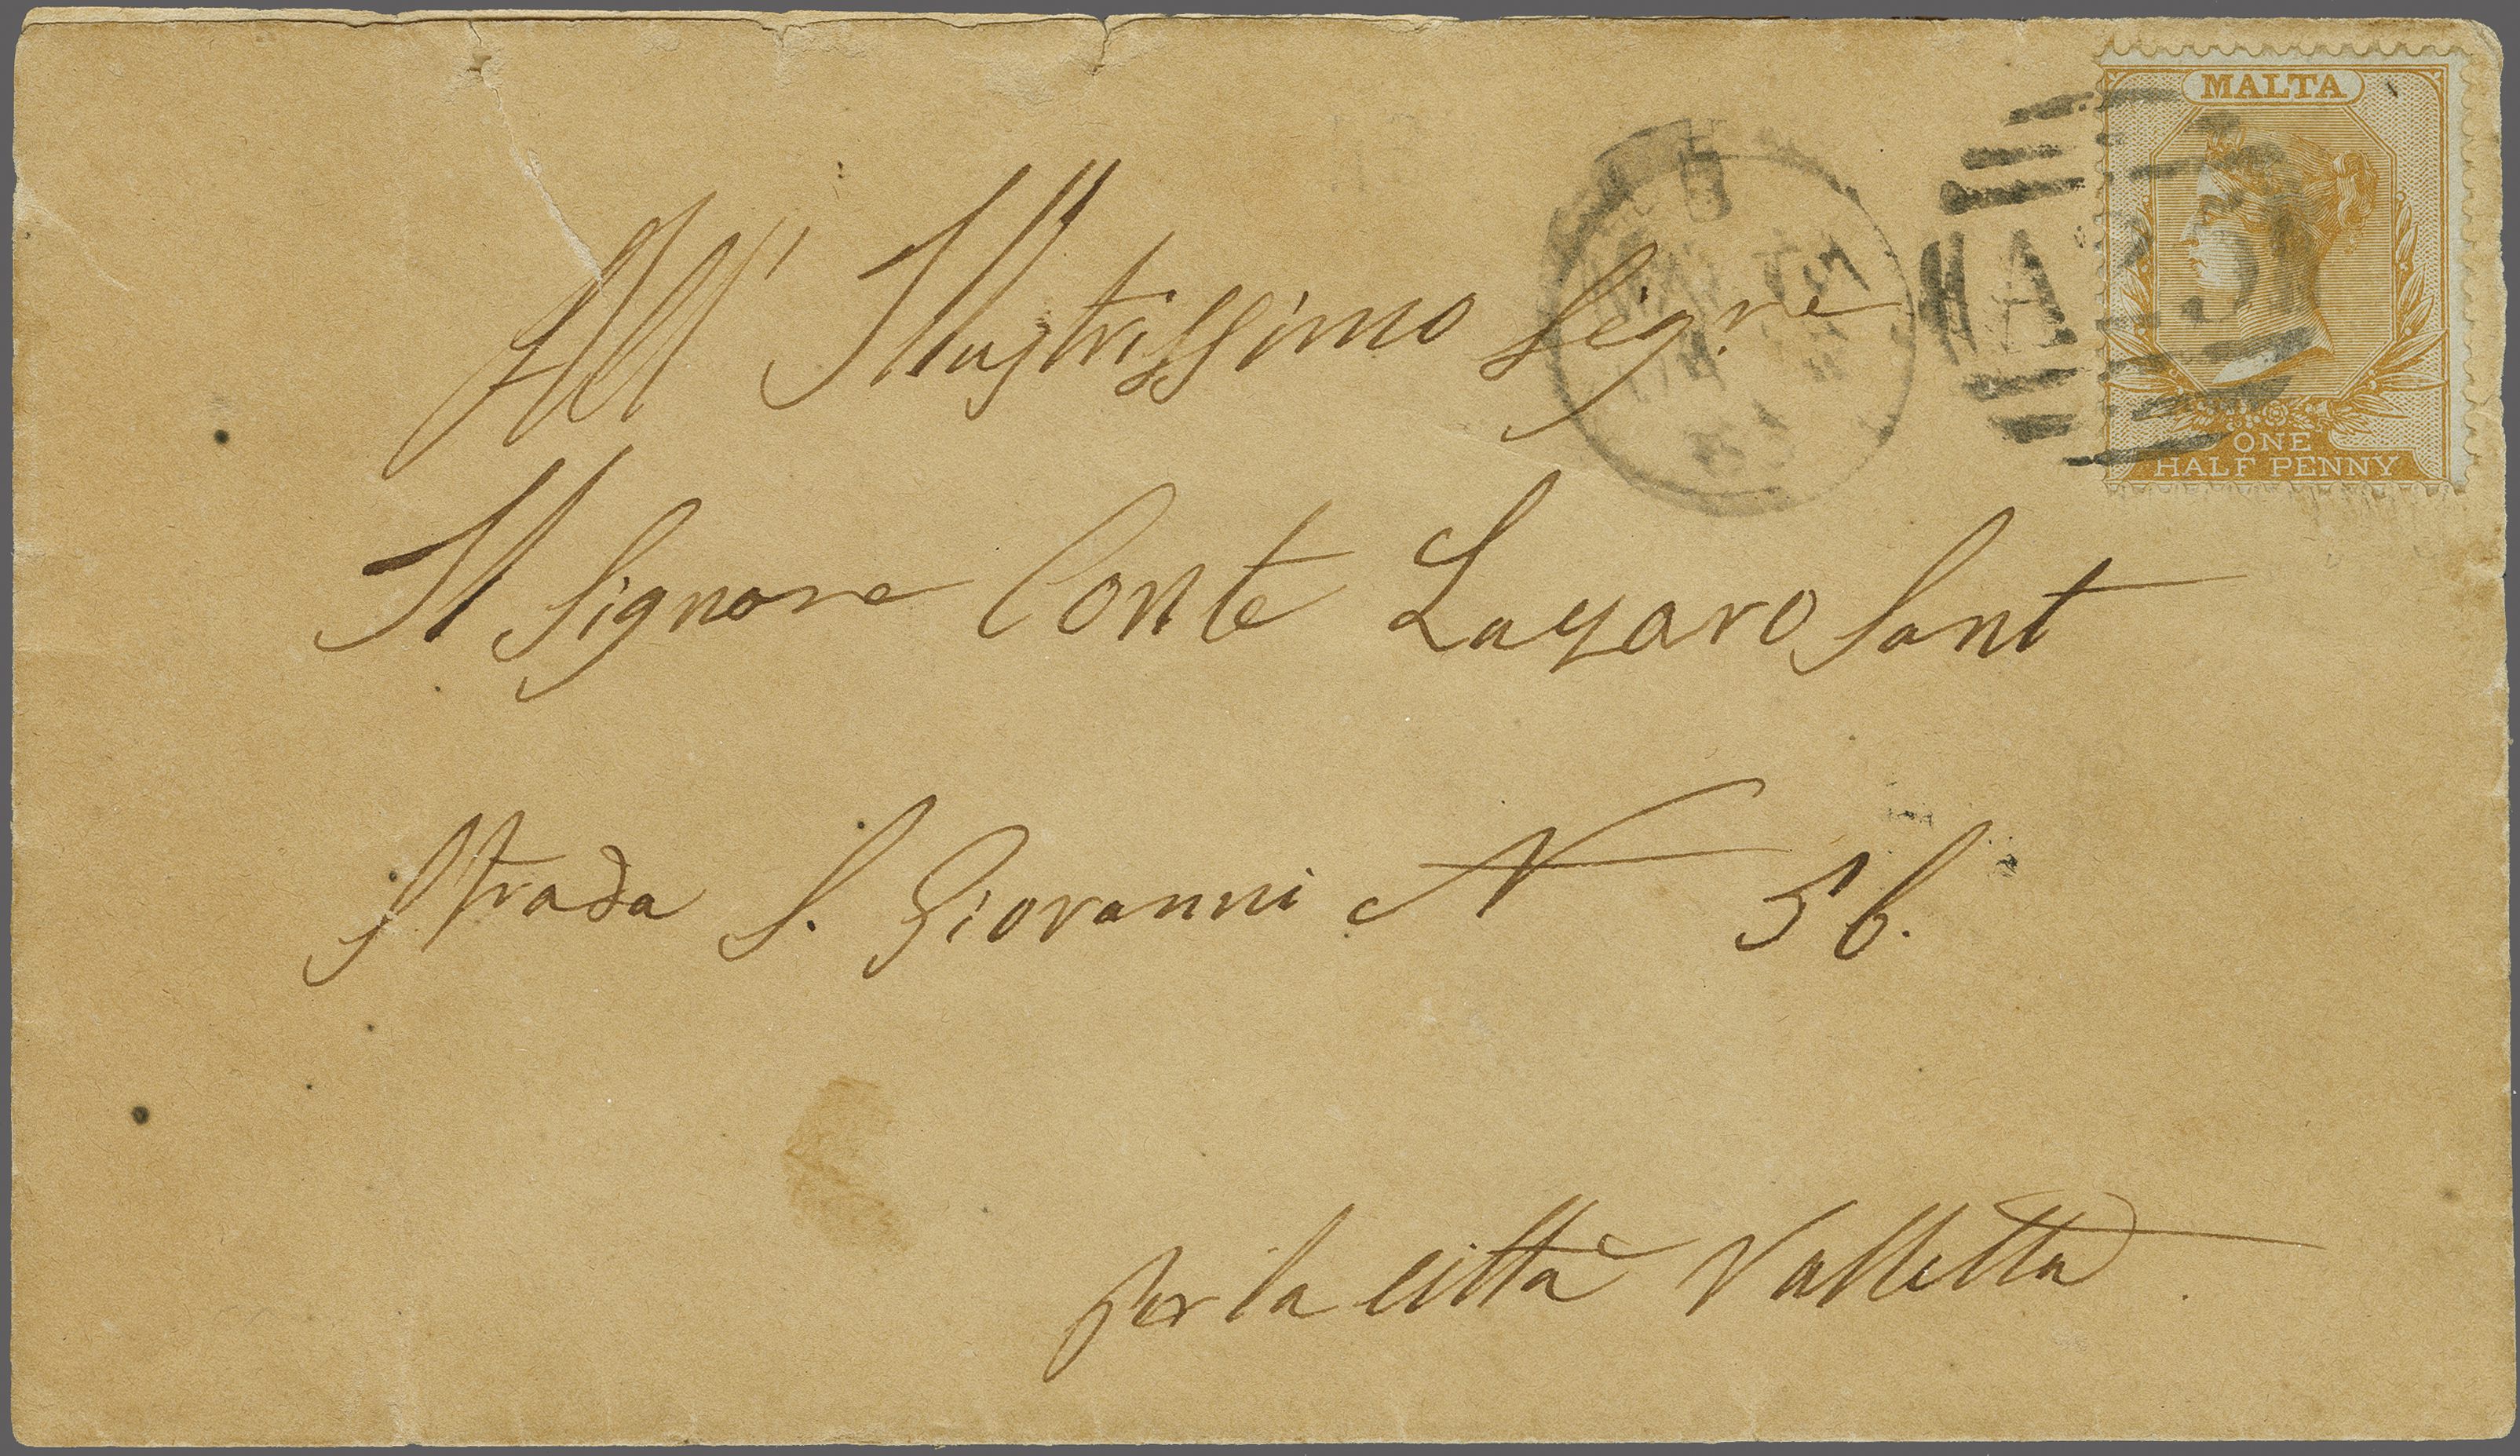 MALTA
A25
ONE
HALF PENNY
All' Illustrissimo Sigre
Il Signore Conte Lazaro Sant
Strada S. Giovanni N 56.
per la città Valletta